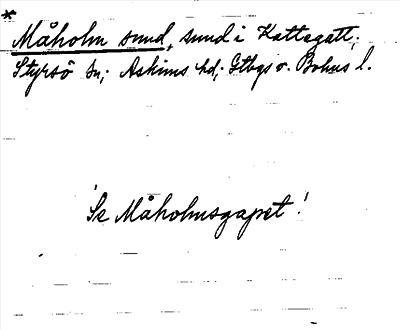 *
Måholm sund, sund i Kattegatt;
Styrsö sn; Askims hd; Gtbgs o. Bohus l.
'Se Måholmsgapet!'